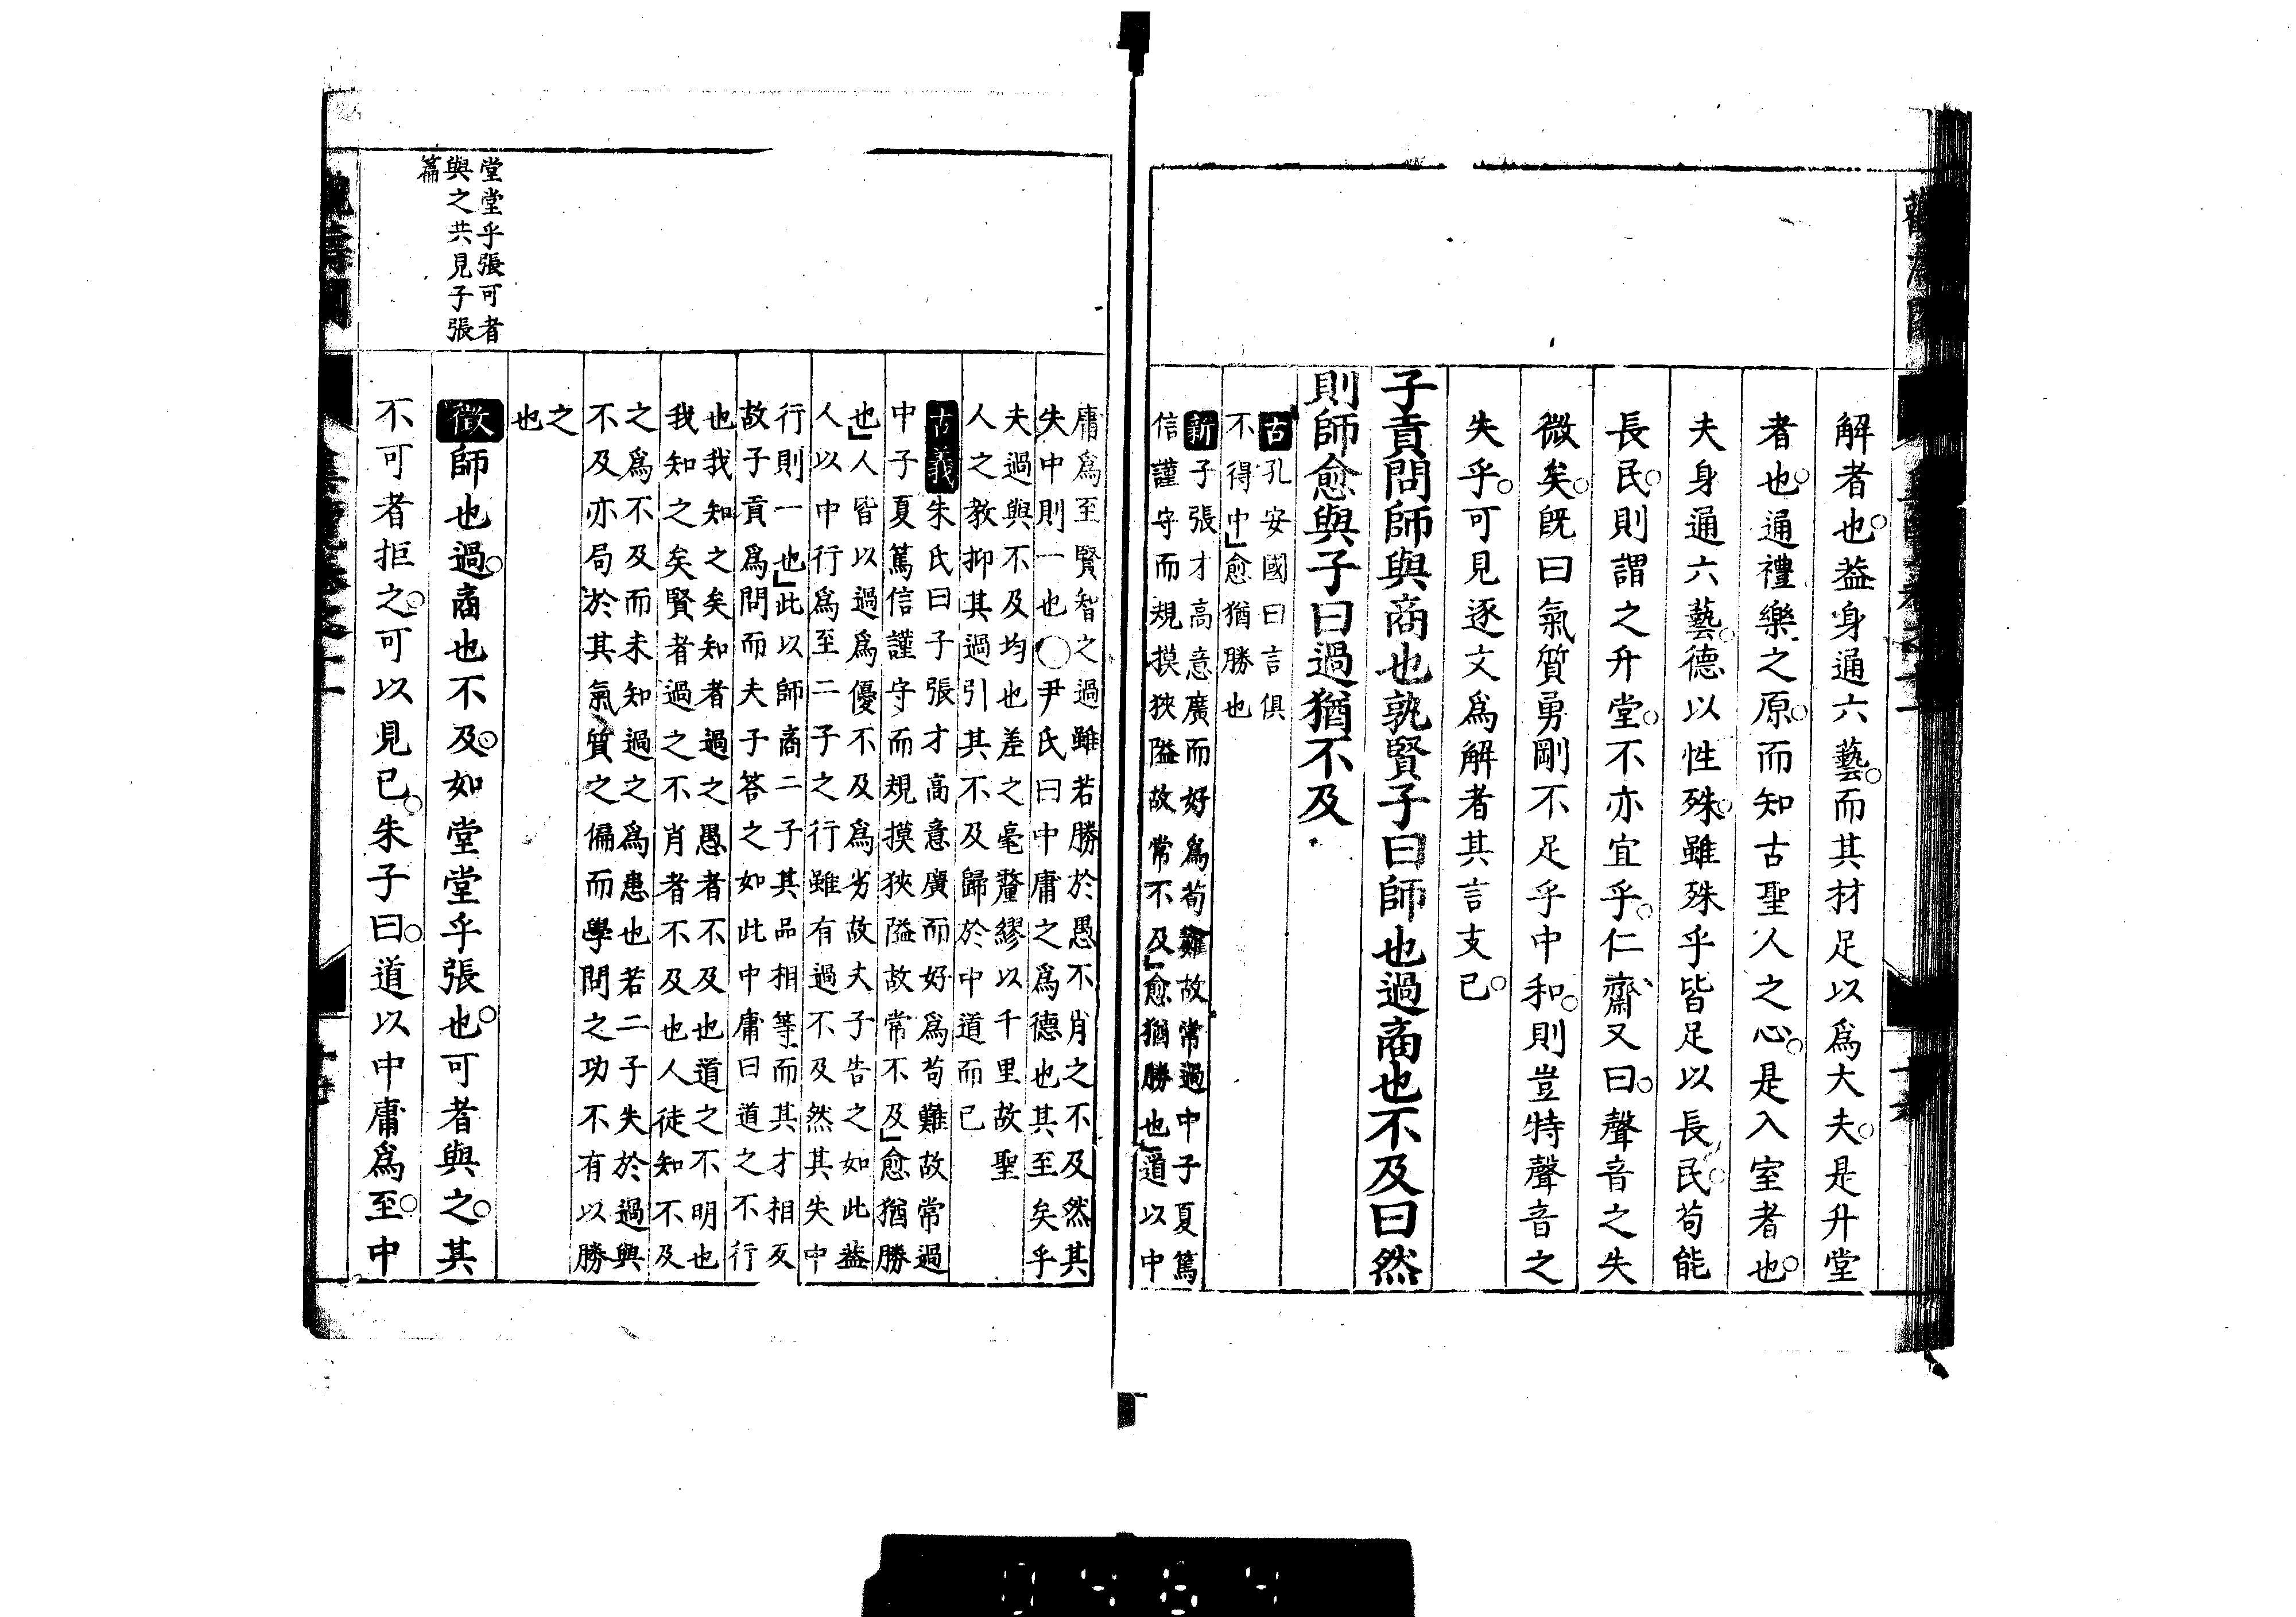 解者也○葢身通六藝○而其材足以爲大夫○是升堂
者也○通禮樂之原○而知古聖人之心○是入室者也○
夫身通六藝○德以性殊○雖殊乎皆足以長民○苟能
長民○則謂之升堂○不亦宜乎○仁齋又曰○聲音之失
微矣○旣曰氣質勇剛不足乎中和○則豈特聲音之
失乎○可見逐文爲解者其言支已○
子貢問師與商也孰賢子曰師也過商也不及曰然
則師愈與子曰過猶不及
古孔安國曰言俱
不得中」愈猶勝也
新子張才高意廣而好爲苟難故常過中子夏篤
信謹守而規摸狹隘故常不及」愈猶勝也」道以中
庸爲至賢智之過雖若勝於愚不肖之不及然其
失中則一也○尹氏曰中庸之爲德也其至矣乎
夫過與不及均也差之毫釐繆以千里故聖
人之教抑其過引其不及歸於中道而已
古義朱氏曰子張才高意廣而好爲苟難故常過
中子夏篤信謹守而規摸狹隘故常不及」愈猶勝
也」人皆以過爲優不及爲劣故夫子告之如此葢
人以中行爲至二子之行雖有過不及然其失中
行則一也」此以師商二子其品相等而其才相反
故子貢爲問而夫子答之如此中庸曰道之不行
也我知之矣知者過之愚者不及也道之不明也
我知之矣賢者過之不肖者不及也人徒知不及
之爲不及而未知過之爲患也若二子失於過與
不及亦局於其氣質之偏而學問之功不有以勝
之
也
徵師也過○商也不及○如堂堂乎張也○可者與之○其
不可者拒之○可以見已○朱子曰○道以中庸爲至○中
堂堂乎張可者
與之共見子張
篇